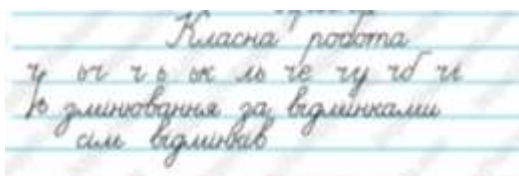 Класна робота
ч ьч ч ь ьк ль че чу чб чі
змінювання за відмінками
сім відмінків